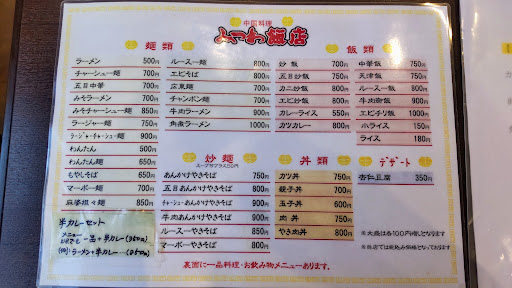 中国料理
みつわ飯店
麺類
ラーメン 500円
チャーシュー麺 700円
五目中華 700円
みそラーメン 700円
みそチャーシュー麺 850円
ラージャー麺 750円
ラージャーチャーシュー麺 900円
わんたん 500円
わんたん麺 650円
もやしそば 650円
マーボー麺 700円
麻婆坦々麺 850円
ルースー麺 800円
エビそば 800円
広東麺 700円
チャンポン麺 700円
牛肉ラーメン 900円
角煮ラーメン 1000円
飯類
炒飯 700円
五目炒飯 750円
カニ炒飯 800円
エビ炒飯 800円
カレーライス 550円
カツカレー 800円
中華飯 750円
天津飯 750円
ルースー飯 800円
牛肉飯 900円
エビチリ飯 1000円
半ライス 150円
ライス 180円
炒麺
スープ付プラス50円
あんかけやきそば 750円
五目あんかけやきそば 800円
チャーシューあんかけやきそば 900円
牛肉あんかけやきそば 900円
ルースーやきそば 850円
マーボーやきそば 800円
丼類
カツ丼 750円
親子丼 700円
玉子丼 600円
肉丼 750円
やき肉丼 800円
デザート
杏仁豆腐 350円
半カレーセット
メニュー
一品+半カレー(350円)
(例)ラーメン+半カレー(850円)
※大盛は各100円増しとなります
※当店では税込み価格となっております
裏面に一品料理・お飲み物メニューあります。